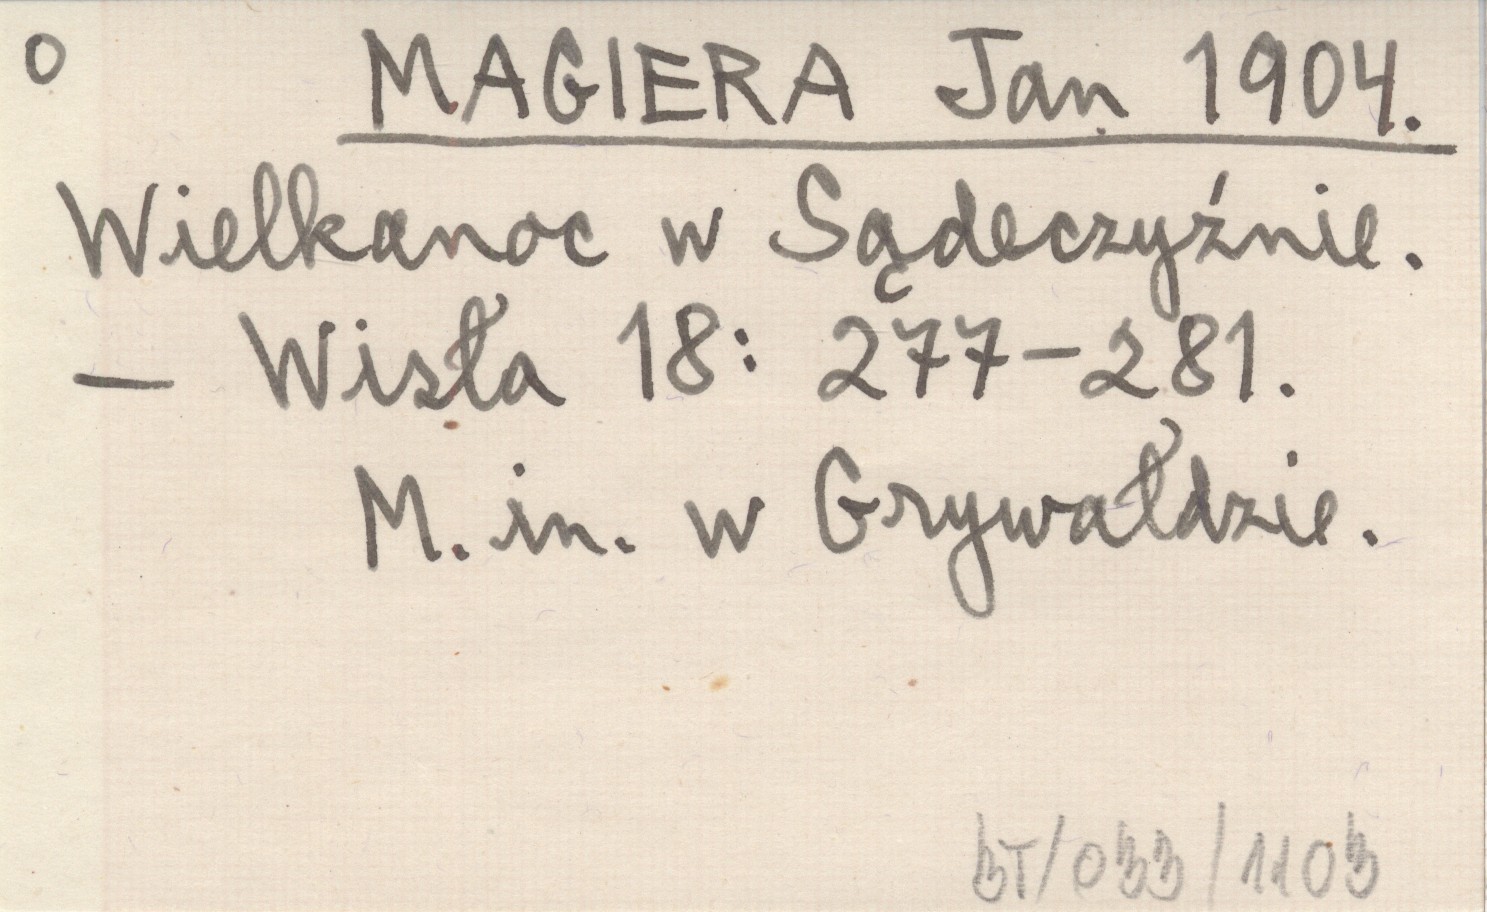 O MAGIERA Jan 1904.
Wielkanoc w Sądeczyźnie.
— Wisła 18: 277-281.
M. in. w Grywałdzie.